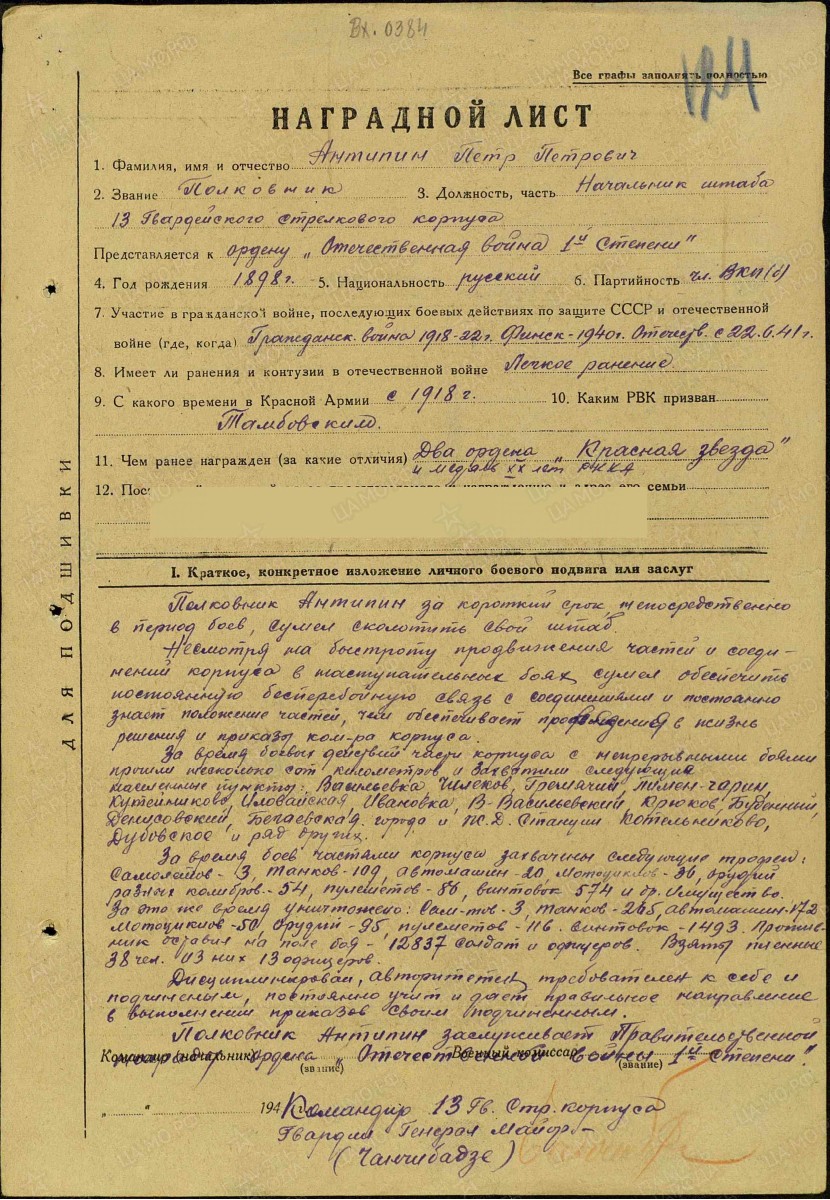 Вх. 0384
Все графы заполнять полностью
НАГРАДНОЙ ЛИСТ
1. Фамилия, имя и отчество Антипин Петр Петрович
2. Звание Полковник 3. Должность, часть Начальник штаба
13 Гвардейского стрелкового корпуса
Представляется к ордену „Отечественная война 1й степени"
4. Год рождения 1898г. 5. Национальность русский 6. Партийность чл. ВКП(б)
7. Участие в гражданской войне, последующих боевых действиях по защите СССР и отечественной
войне (где, когда) Гражданск. война 1918-22г. Финск-1940г. Отечеств. с 22.6.41г.
8. Имеет ли ранения и контузии в отечественной войне Легкое ранение.
9. С какого времени в Красной Армии с 1918 г. 10. Каким РВК призван
Тамбовским.
11. Чем ранее награжден (за какие отличия) Два ордена „Красная звезда"
и медаль XX лет РККА
12. Пос адрес его семьи
ДЛЯ ПОДШИВКИ
I. Краткое, конкретное изложение личного боевого подвига или заслуг
Полковник Антипин за короткий срок, непосредственно
в период боев, сумел сколотить свой штаб.
Несмотря на быстроту продвижения частей и соеди-
нений корпуса в наступательных боях, сумел обеспечить
постоянную бесперебойную связь с соединениями и постоянно
знает положение частей, чем обеспечивает проведения в жизнь
решения и приказы ком-ра корпуса.
За время боевых действий части корпуса с непрерывными боями
прошли несколько сот километров и захватили следующие
населенные пункты: Васильевка, Чилеков, Гремячий,
Кутейниково, Иловайская, Ивановка, В-Васильевский, Крюков, Буденный,
Денисовский, Бегаевская. города и Ж.Д. станции Котельниково,
Дубовское и ряд других.
За время боев частями корпуса захвачены следующие трофеи:
Самолетов-3, танков-109, автомашин-20, мотоциклов-30, орудий
разных колибров-54, пулеметов-86, винтовок 574 и др. имущество.
За это же время уничтожено: Сам-тов-3, танков-265, автомашин-172
Мотоциклов-50 орудий-95, пулеметов-116. Винтовок-1493. Против-
ник оставил на поле боя-12837 солдат и офицеров. Взяты пленные
38 чел. из них 13 офицеров.
Дисциплинирован, авторитетен, требователен к себе и
подчиненым, постоянно учит и дает правильное направление
в выполнении приказов своим подчиненным.
Полковник Антипин заслуживает Правительственной
Командир (начальник) Ордена „Отечественной Войны 1й степени".
Военный комиссар
(звание) (звание)
„ " 194 Командир 13 Гв. Стр. корпуса
Гвардии Генерал Майор-
(Чанчибадзе)